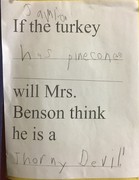 If the turkey
has pinecones
will Mrs.
Benson think
he is a
Thorny Devil